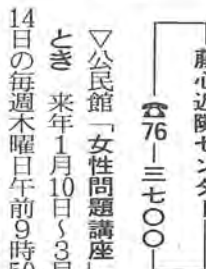 藤心近隣センター
☎76―三七〇〇
▽公民館「女性問題講座」
とき 来年1月10日~3月
14日の毎週木曜日午前9時50